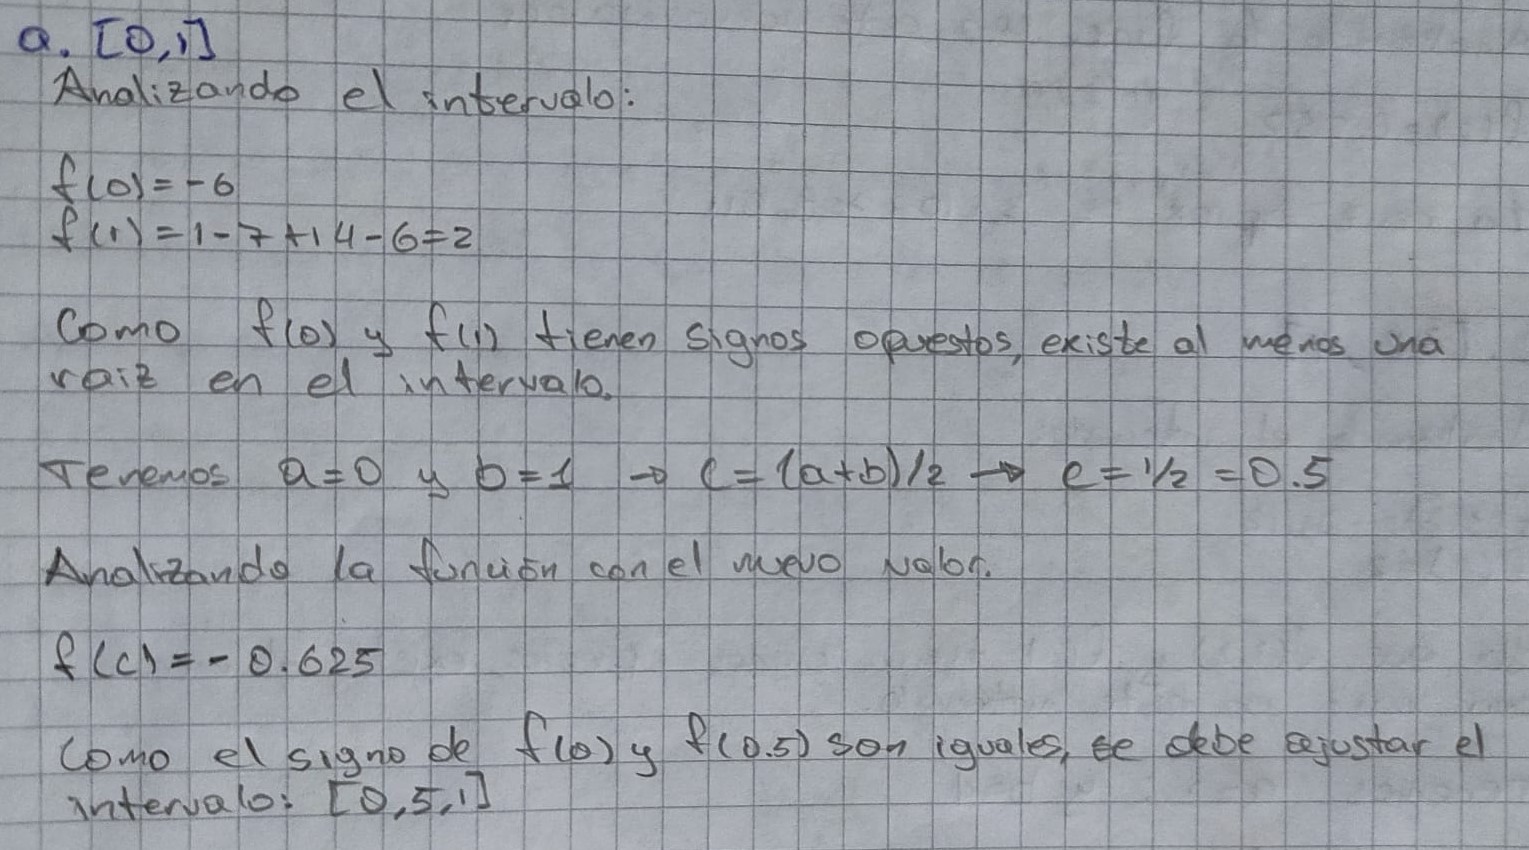 a. [0,1]
Analizando el intervalo:
f(0)=-6
f(1)=1-7+14-6=2
Como f(0) y f(1) tienen signos opuestos, existe al menos una
raiz en el intervalo.
Tenemos a=0 y b=1 → c=(a+b)/2 → c=1/2=0.5
Analizando la función con el nuevo valor.
f(c)=-0.625
Como el signo de f(0) y f(0.5) son iguales, se debe ajustar el
intervalo: [0,5,1]